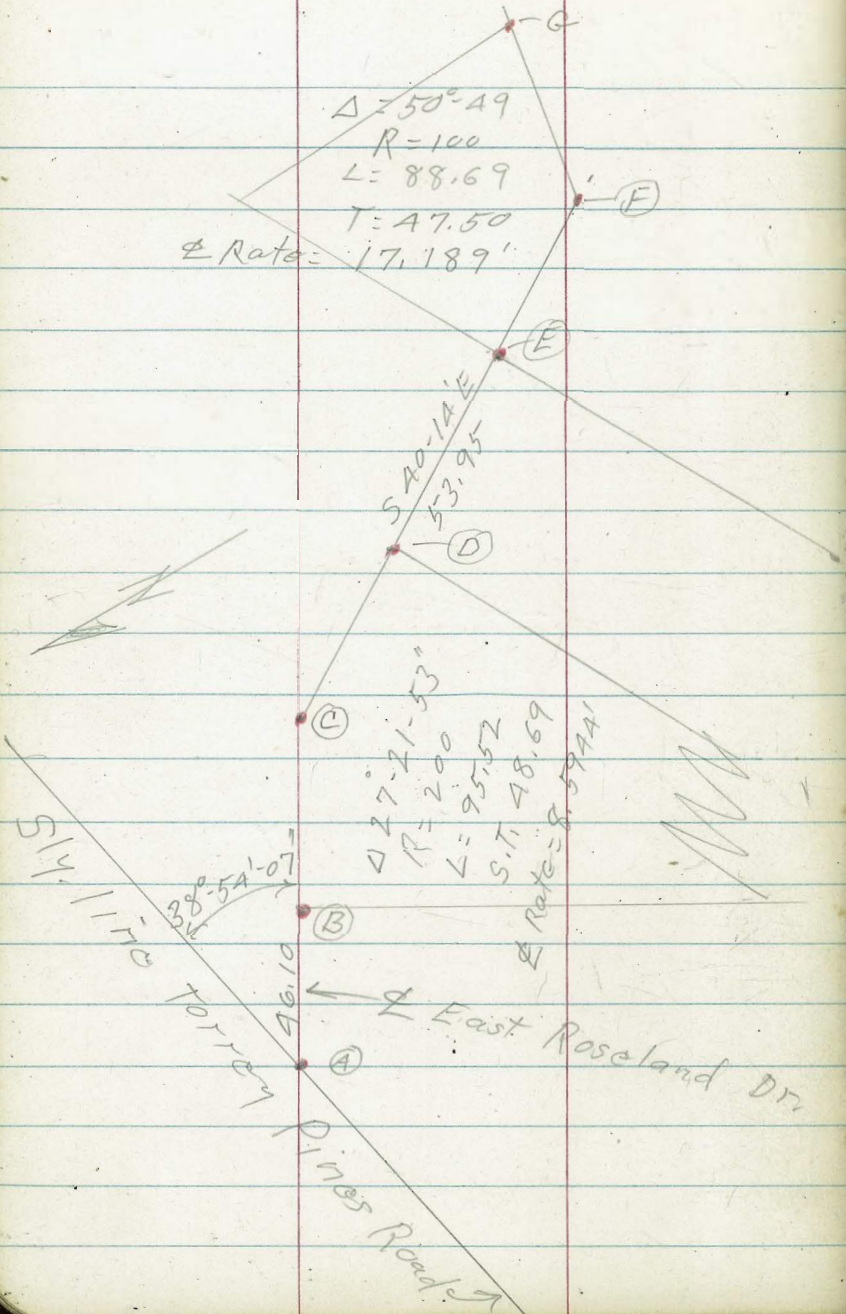 G
Δ = 50°-49
R = 100
L = 88.69
T = 47.50
℄ Rate = 17.189'
F
E
S 40-14'E
53.95
D
N
C
Δ 27°-21-53"
R = 200
L = 95.52
S.T. 48.69
℄ Rate = 8.5944'
38°-54'-07"
B
46.10
℄ East Roseland Dr.
A
Sly. line Torrey Pines Road